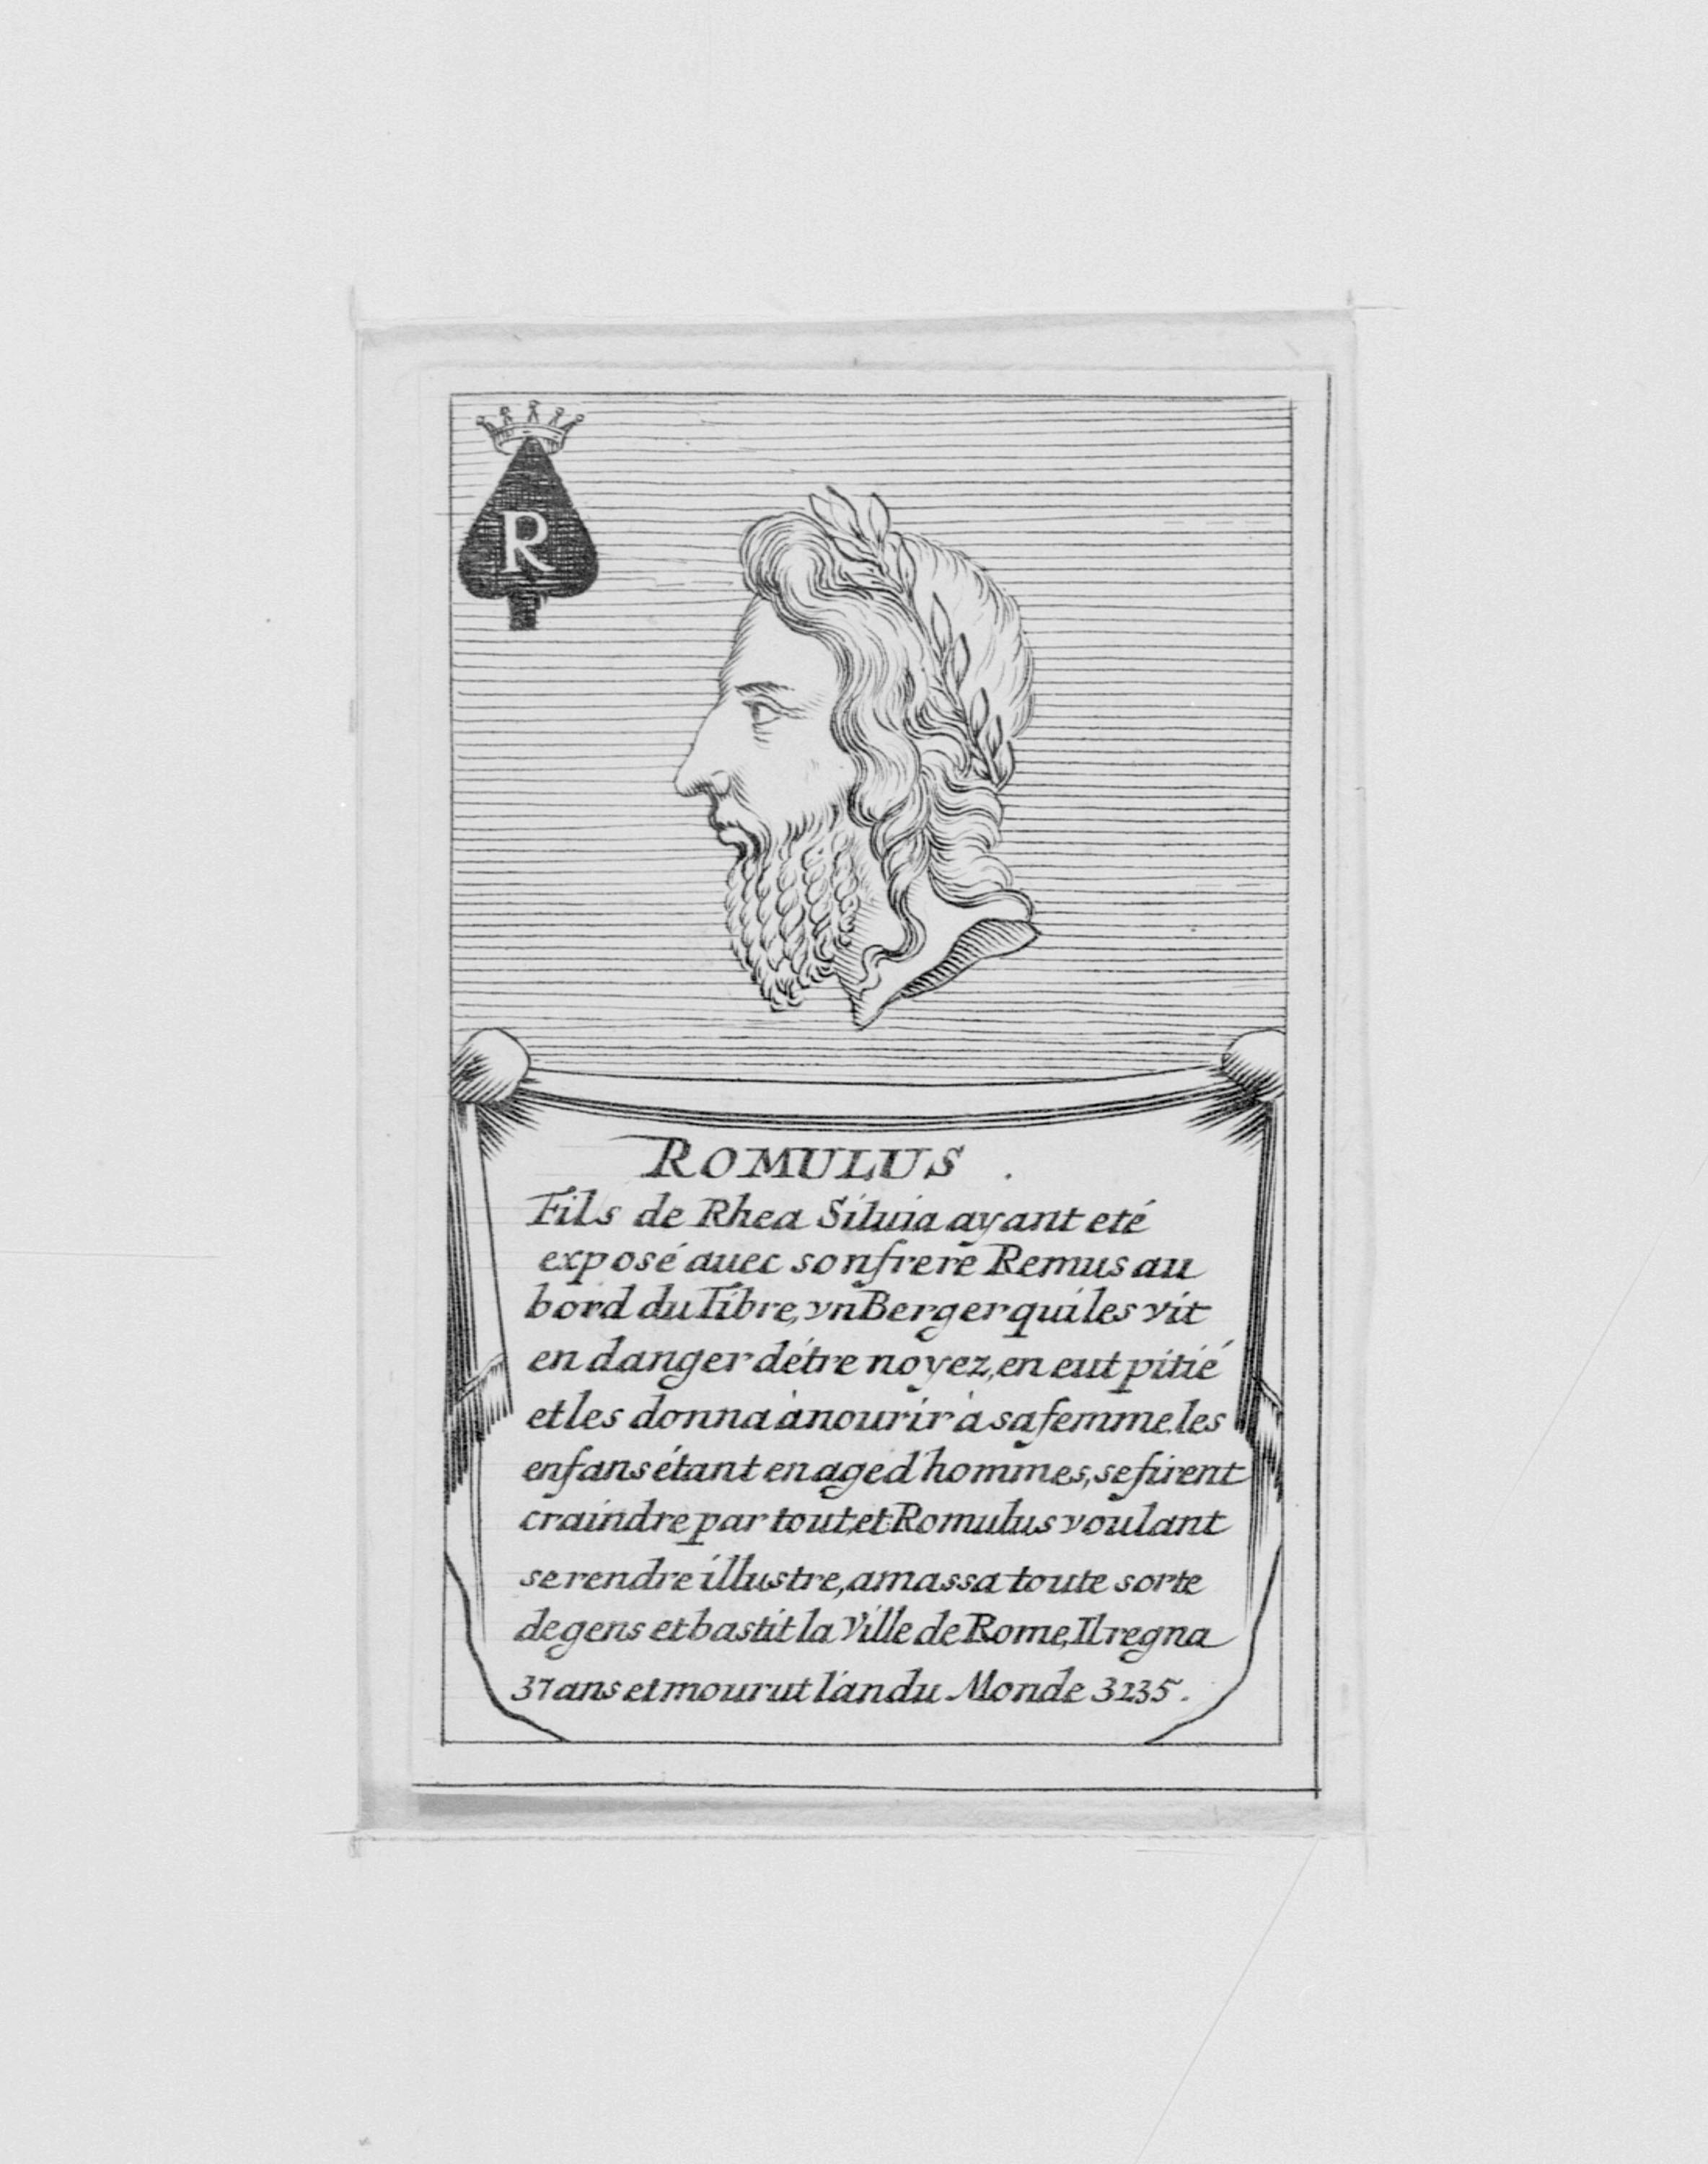 R
ROMULUS.
Fils de Rhea Siluia ayant eté
exposé auec son frere Remus au
bord du Tibre, vn Berger qui les vit
en danger d'étre noyez, en eut pitié
et les donna à nourir à sa femme. les
enfans étant en age d'hommes, se firent
craindre par tout, et Romulus voulant
se rendre illustre, amassa toute sorte
de gens et bastit la Ville de Rome, Il regna
37 ans et mourut l'an du Monde 3235.